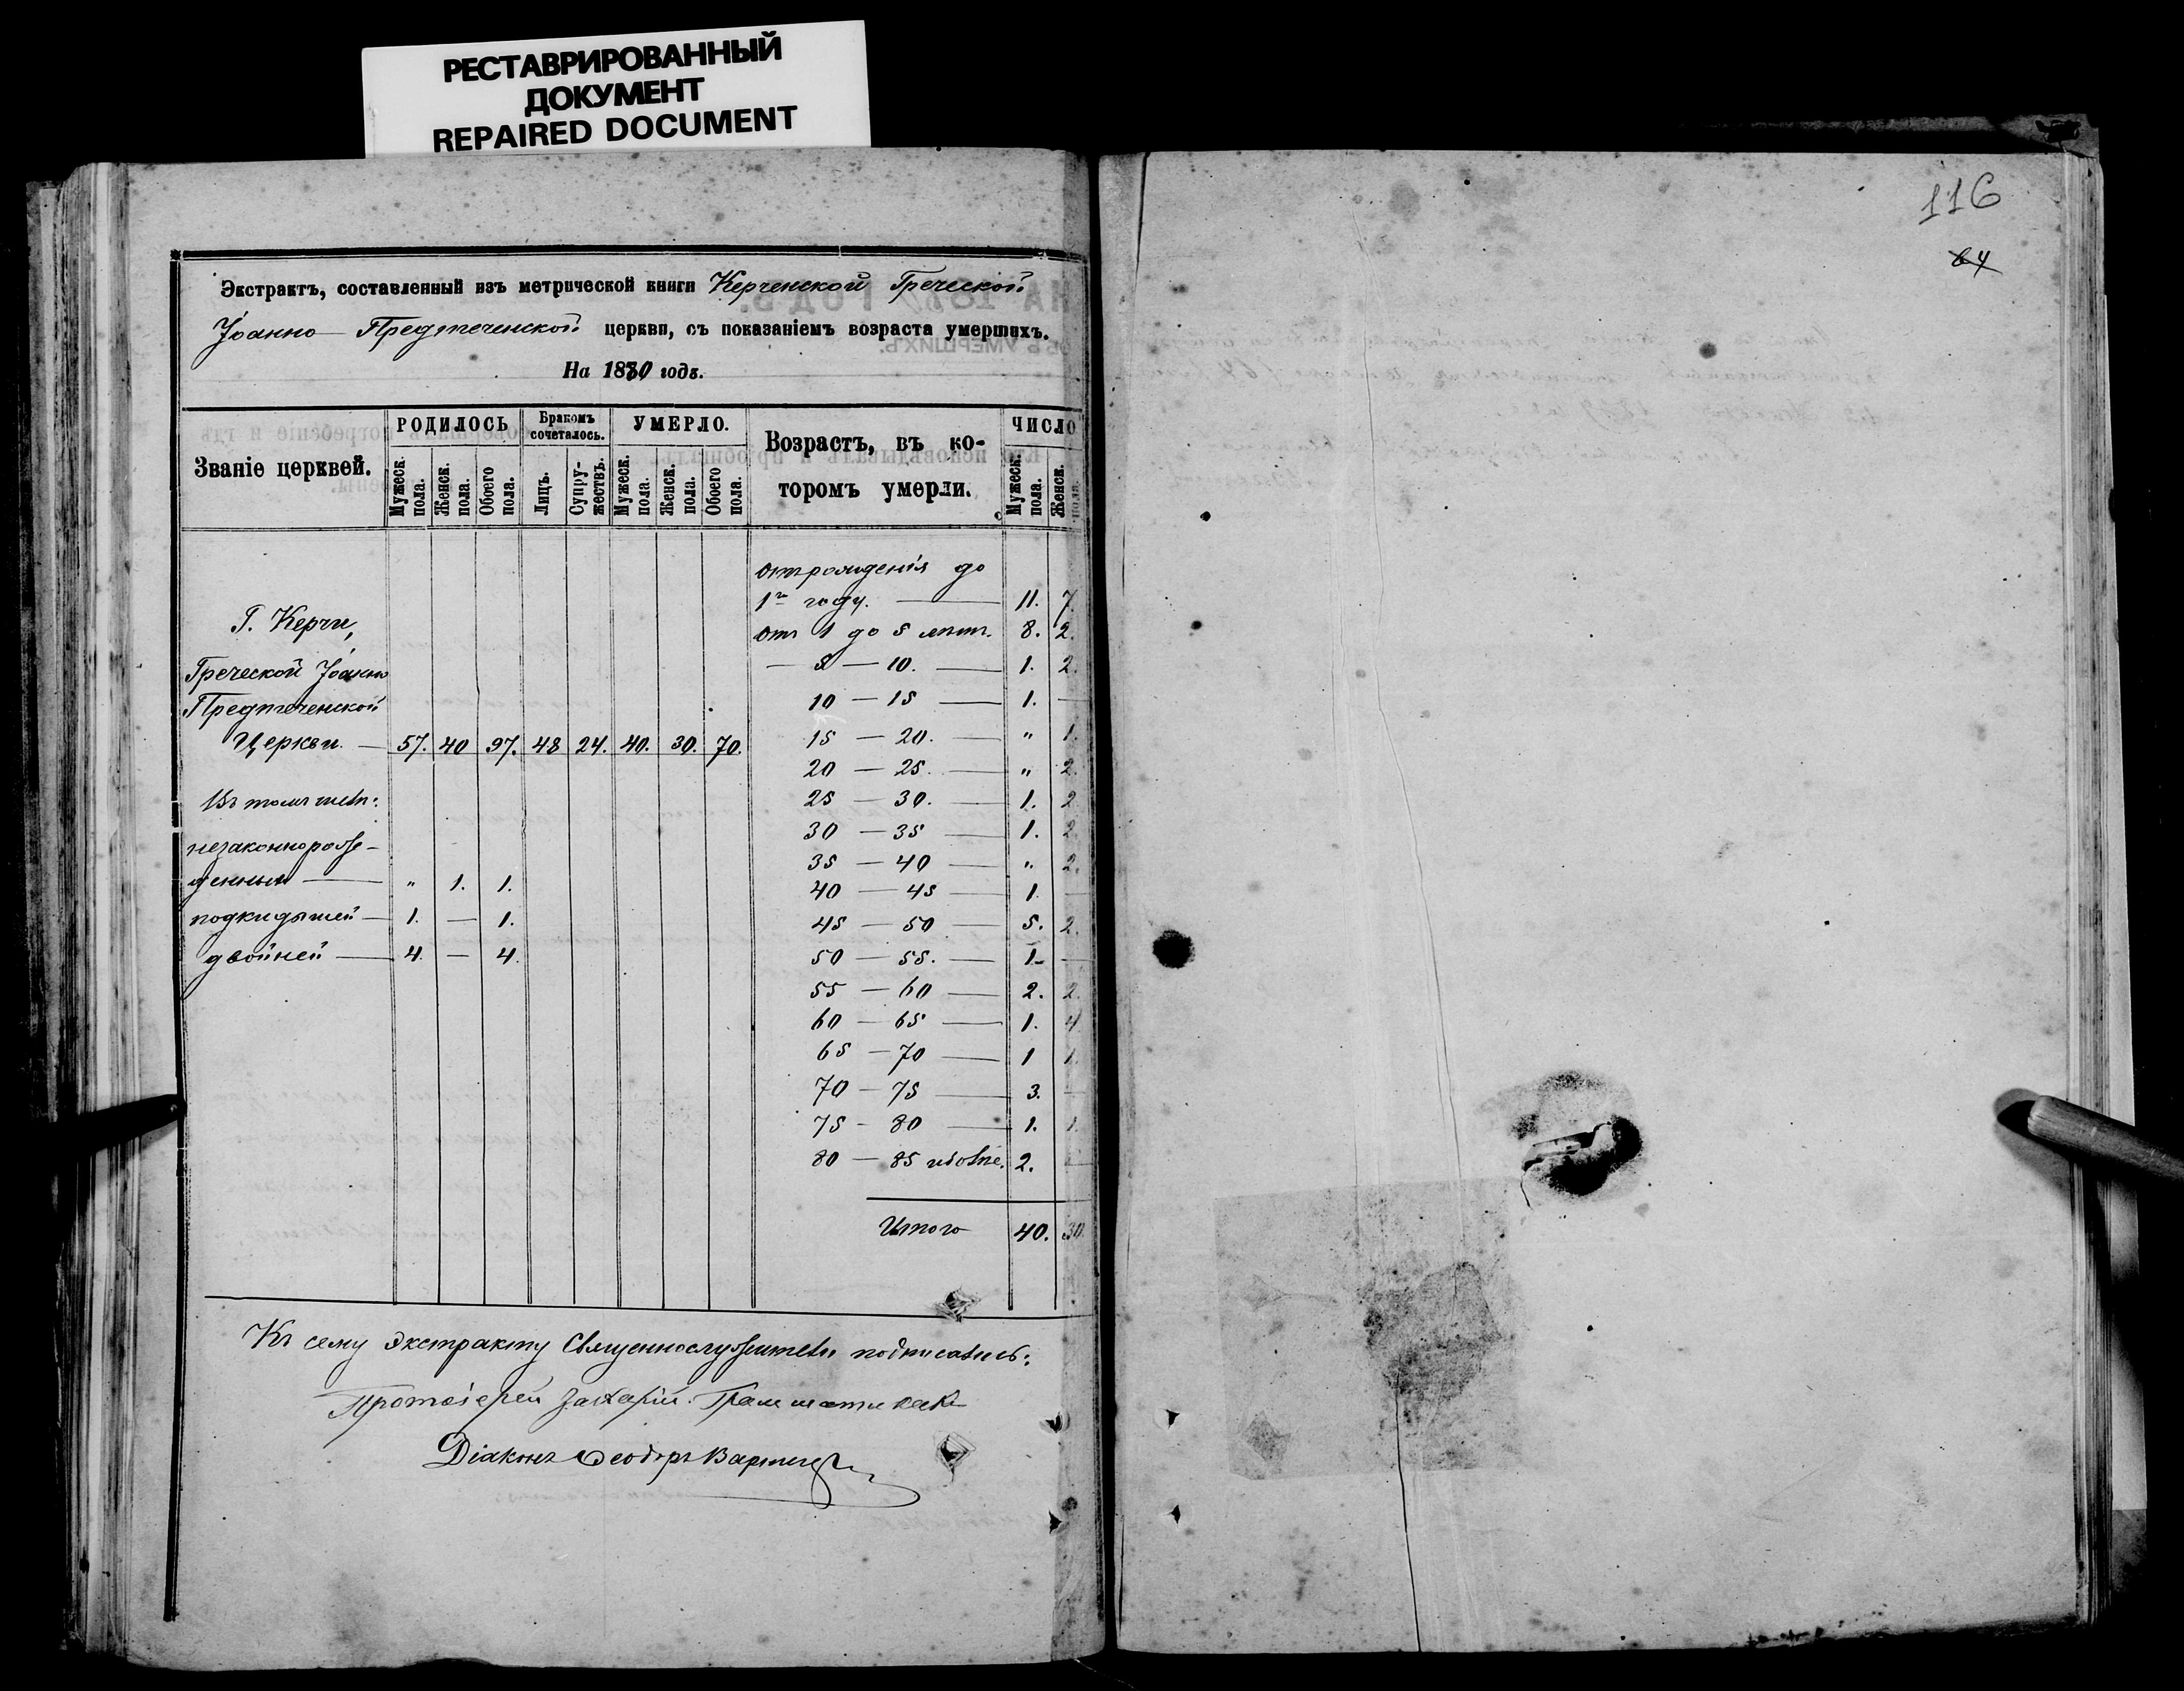 РЕСТАВРИРОВАННЫЙ
ДОКУМЕНТ
REPAIRED DOCUMENT
116
64
Экстрактъ, составленный изъ метрической книги Керченской Греческой
Іоанно-Предтеченской церкви, съ показаніемъ возраста умершихъ.
На 1870 годъ.
Званіе церквей.
РОДИЛОСЬ
Мужеск. пола.
Женск. пола.
Обоего пола.
Бракомъ сочеталось.
Лицъ.
Супружествъ.
УМЕРЛО.
Мужеск. пола.
Женск. пола.
Обоего пола.
Возрастъ, въ ко-
торомъ умерли.
ЧИСЛО
Мужеск. пола.
Женск. пола.
Г. Керчи,
Греческой Іоанно
Предтеченской
Церкви. — 57. 40 97. 48 24. 40. 30. 70.
Въ томъ числѣ:
незаконнорож-
денных — " 1. 1.
подкидышей — 1. — 1.
двойней — 4. — 4.
отъ рожденія до
1го году. — 11. 7.
отъ 1 до 5 лѣтъ. 8. 2.
— 5 — 10. — 1. 2.
10 — 15 — 1. —
15 — 20. — " 1.
20 — 25. — " 2.
25 — 30. — 1. 2
30 — 35 — 1. 2.
35 — 40 — " 2.
40 — 45 — 1. —
45 — 50 — 5. 2.
50 — 55. — 1 —
55 — 60 — 2. 2.
60 — 65 — 1. 4.
65 — 70 — 1 1.
70 — 75 — 3. —
75 — 80 — 1. 1.
80 — 85 и болѣе. 2. —
Итого 40. 30
Къ сему экстракту Священнослужители подписались:
Протоіерей Захарій
Діаконъ Ѳеодоръ